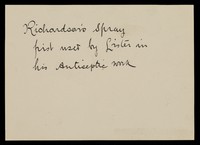 Richardson's Spray
first used by Lister in
his Antiseptic work